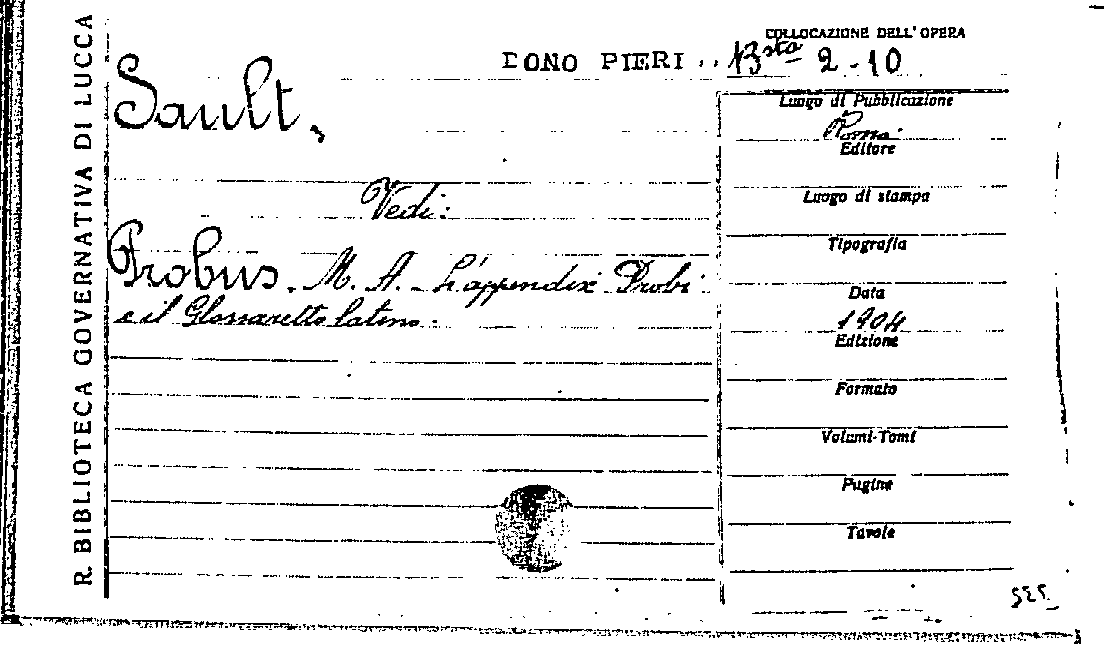 R. BIBLIOTECA GOVERNATIVA DI LUCCA
COLLOCAZIONE DELL'OPERA
DONO PIERI .. 13sta 2-10
Sault,
Vedi:
Probus. M. A. - L'appendix Probi
e il Glossaretto latino.
Luogo di Pubblicazione
Roma.
Editore
Luogo di stampa
Tipografia
Data
1904
Edizione
Formato
Volumi-Tomi
Pagine
Tavole